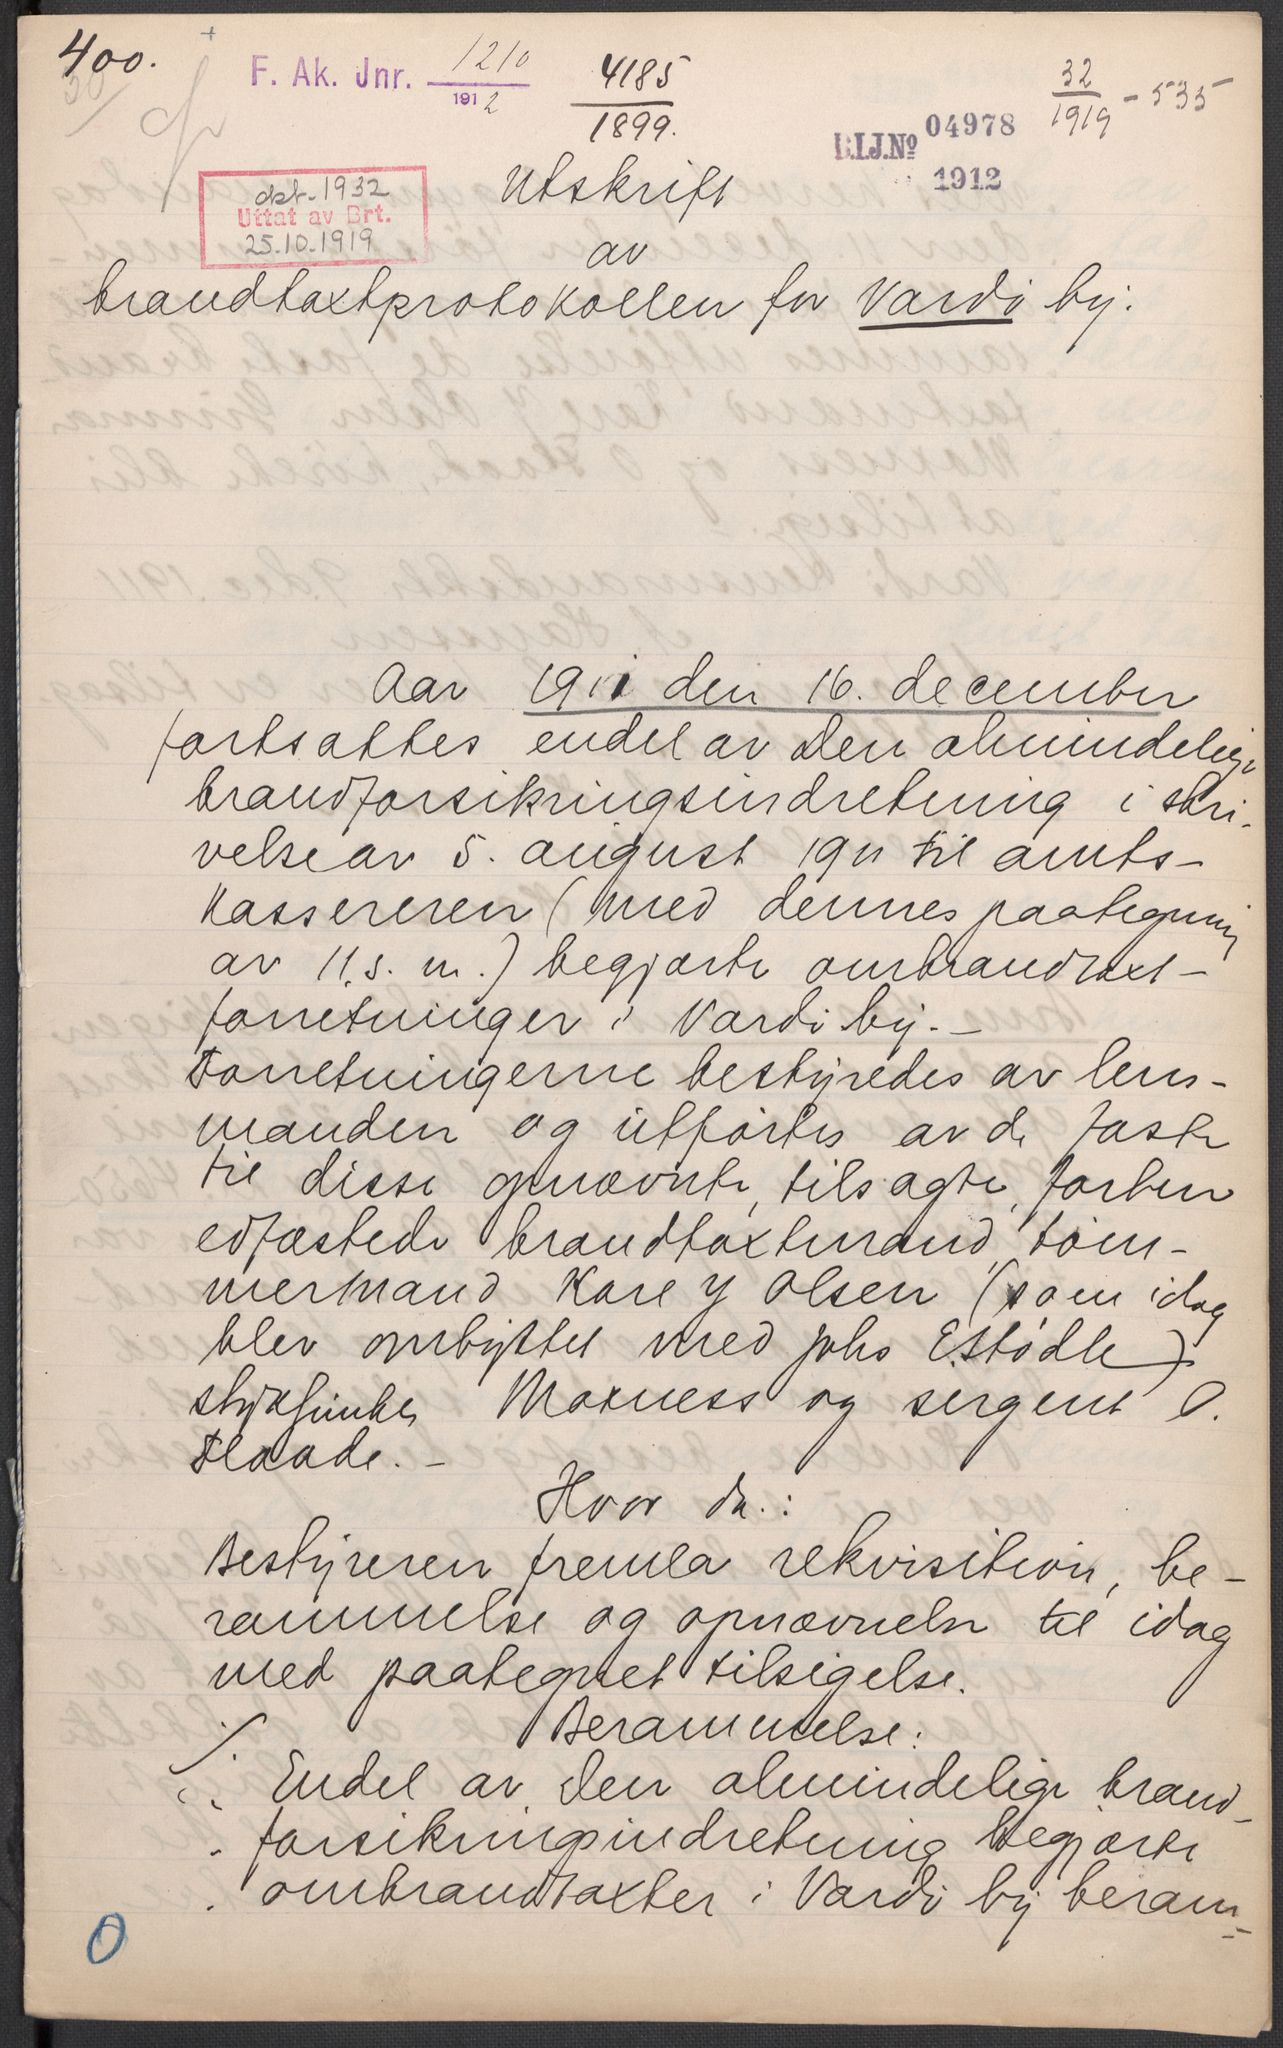 400.
F. Ak. Jnr. 1210
1912
4185
1899.
32
1919 - 535
B.I.J.No 04978
1912
dkt. 1932
Uttat av Brt.
25.10.1919
Utskrift
av
brandtaxtprotokollen for Vardö by.
Aar 1911 den 16. december
fortsattes endel av den almindelige
brandforsikringsindretning i skri-
velse av 5. august 1911 til amts-
kassereren (med dennes paategning
av 11. s. m.) begjærte ombrandtaxt-
forretninger i Vardö by. -
Forretningerne bestyredes av lens-
manden og utførtes av de faste
til disse opnævnte, tilsagte, forhen
edfæstede brandtaxtmænd, töm-
mermand Kare J Olsen (som idag
blev ombyttet med Johs E. Stødle)
Maxness og sergent O.
Flaade. -
Hvor da.:
Bestyreren fremla rekvisition, be-
rammelse og opnævnelse til idag
med paategnet tilsigelse.
Berammelse:
./. Endel av den almindelige brand-
forsikringsindretning begjærte
ombrandtaxter i Vardö by beram-
0